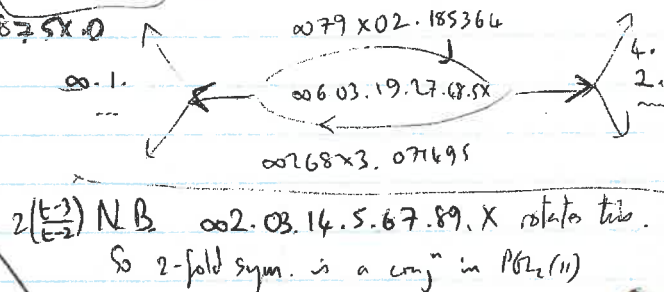 ∞79X02.185364
4.
∞.1.
∞6 03.19.27.48.5X
2.
∞268X3.071495
2(t-3/t-2) N.B. ∞2.03.14.5.67.89.X rotates this.
So 2-fold sym. is a conjⁿ in PGL₂(11)